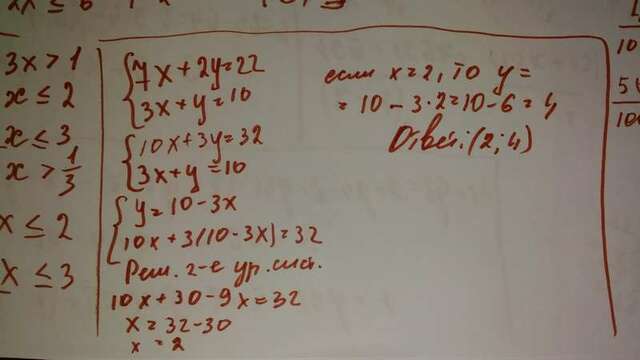 3x > 1
x ≤ 2
x ≤ 3
x > 1/3
x ≤ 2
x ≤ 3
7x + 2y = 22
3x + y = 10
10x + 3y = 32
3x + y = 10
y = 10 - 3x
10x + 3(10 - 3x) = 32
Реш. 2-е ур. сист.
10x + 30 - 9x = 32
x = 32 - 30
x = 2
если x = 2, то y =
= 10 - 3·2 = 10 - 6 = 4
Ответ: (2; 4)
10